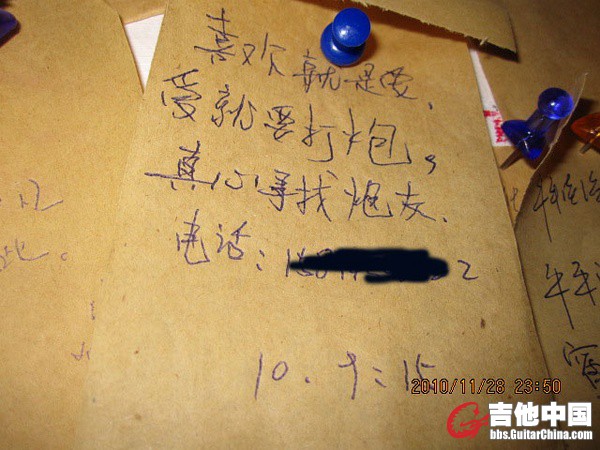 喜欢就是爱,
爱就要打炮,
真心寻找炮友.
电话:
10.
2010/11/28 23:50
吉他中国
bbs.GuitarChina.com
年年